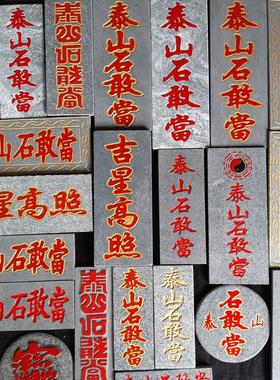 泰山石敢當
泰山石敢當
泰山石敢當
泰山石敢當
泰山石敢當
山石敢當
吉星高照
泰山石敢當
泰山石敢當
星高照
山石敢當
山石敢當
泰山石敢當
泰山石敢當
泰山石敢當
石敢當
泰山